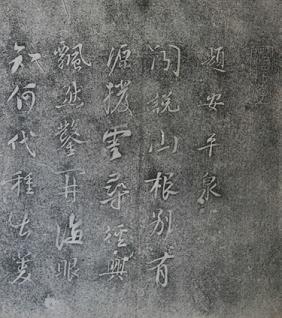 題安平泉
聞說山根別有
源撥雲尋徑興
飄然鑿井海眼
知何代種出菱